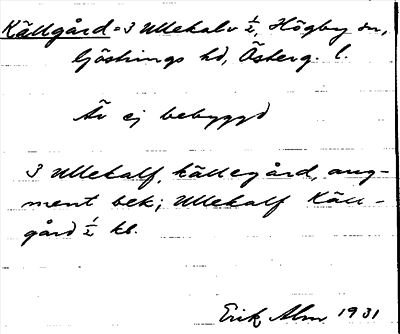 Källgård = 3 Ullekalv ½, Högby sn,
Göstrings hd, Österg. l.
Är ej bebyggd
3 Ullekalf, källegård, aug-
ment bek; Ullekalf Käll-
gård ½ kl.
Erik Alm 1931